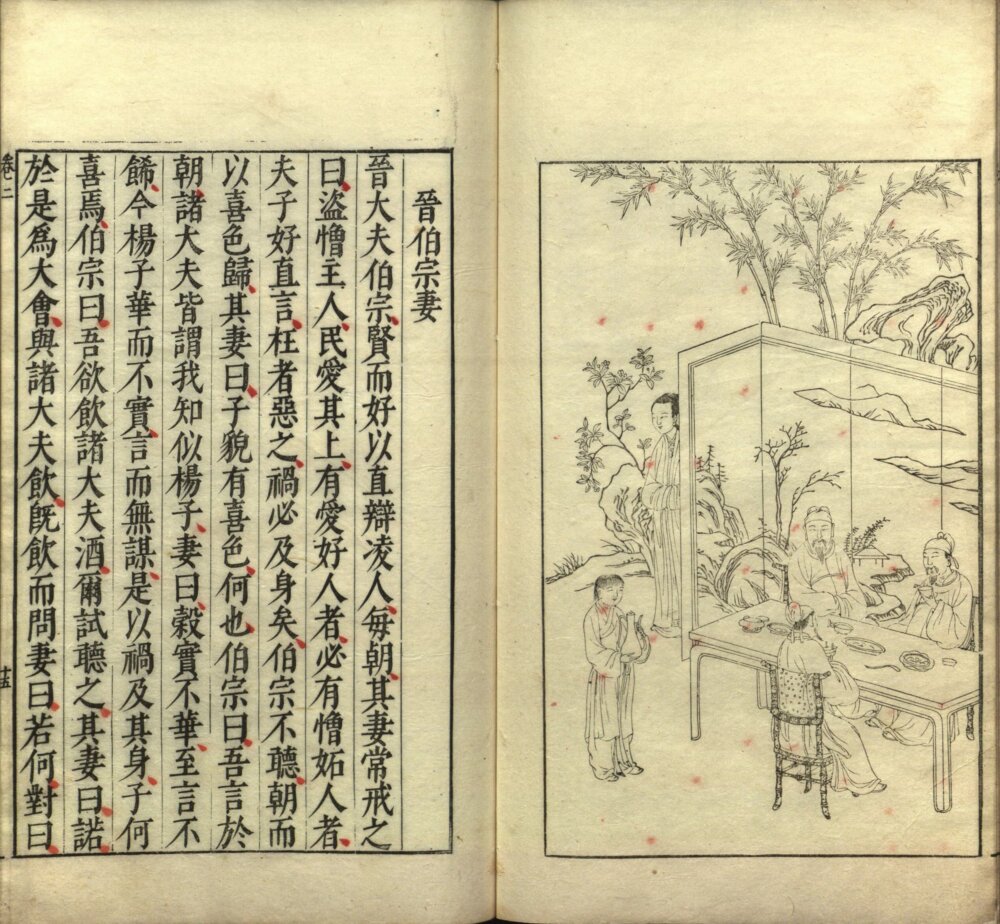 晉伯宗妻
晉大夫伯宗賢而好以直辯凌人每朝其妻常戒之
曰盜憎主人民愛其上有愛好人者必有憎妬人者
夫子好直言枉者惡之禍必及身矣伯宗不聽朝而
以喜色歸其妻曰子貌有喜色何也伯宗曰吾言於
朝諸大夫皆謂我知似楊子妻曰穀實不華至言不
餙今楊子華而不實言而無謀是以禍及其身子何
喜焉伯宗曰吾欲飲諸大夫酒爾試聽之其妻曰諾
於是爲大會與諸大夫飲旣飲而問妻曰若何對曰
卷二
十五